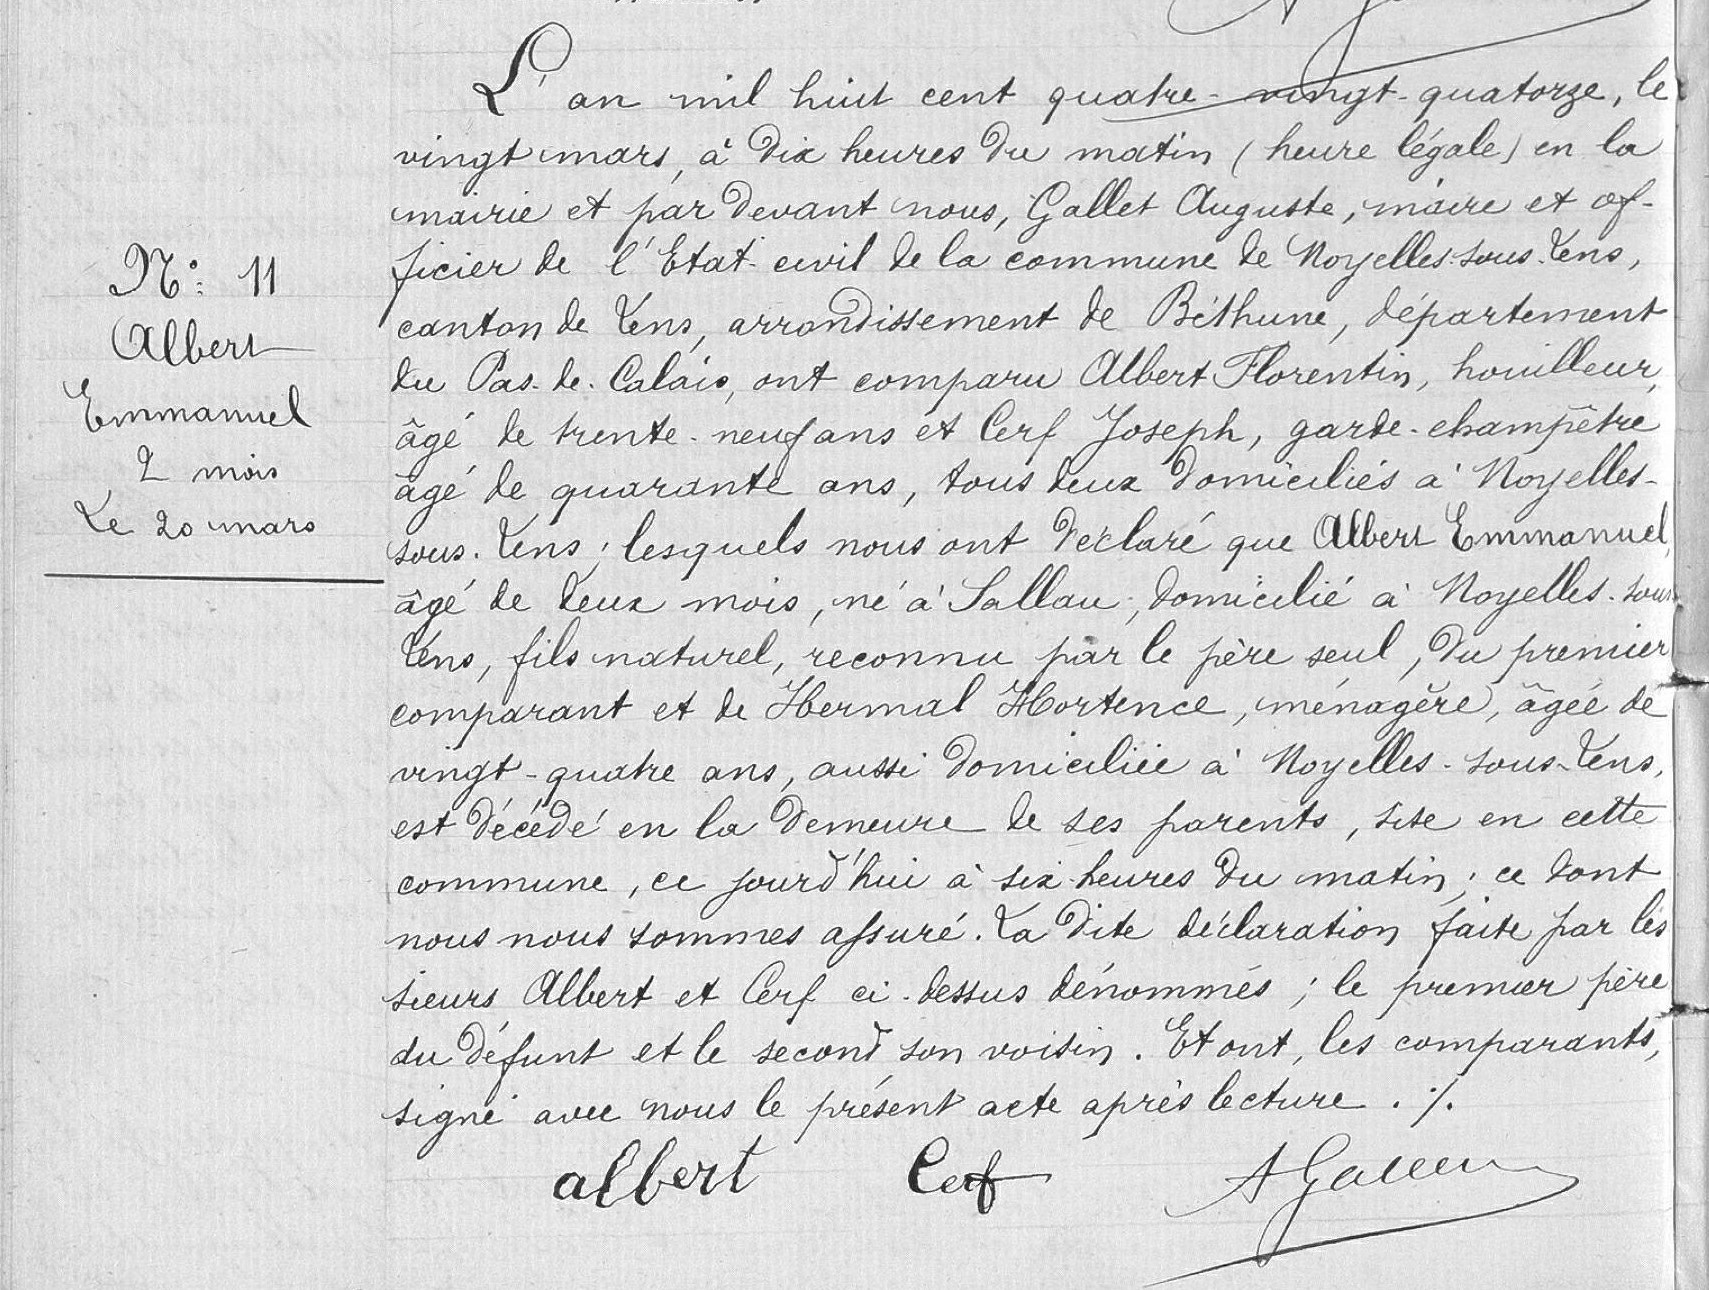 N°: 11
Albert
Emmanuel
2 mois
Le 20 mars
L'an mil huit cent quatre-vingt-quatorze, le
vingt mars, à dix heures du matin (heure légale) en la
mairie et par devant nous, Gallet Auguste, maire et of-
ficier de l'Etat-civil de la commune de Noyelles-sous-Lens,
canton de Lens, arrondissement de Béthune, département
du Pas-de-Calais, ont comparu Albert Florentin, houilleur,
âgé de trente-neuf ans et Cerf Joseph, garde-champêtre
âgé de quarante ans, tous deux domiciliés à Noyelles-
sous-Lens; lesquels nous ont déclaré que Albert Emmanuel,
âgé de deux mois, né à Sallau, domicilié à Noyelles-sous
Lens, fils naturel, reconnu par le père seul, du premier
comparant et de Hermal Hortence, ménagère, âgée de
vingt-quatre ans, aussi domiciliée à Noyelles-sous-Lens,
est décédé en la demeure de ses parents, sise en cette
commune, ce jourd'hui à six heures du matin; ce dont
nous nous sommes assuré. La dite déclaration faite par les
sieurs Albert et Cerf ci-dessus dénommés; le premier père
du défunt et le second son voisin. Et ont, les comparants,
signé avec nous le présent acte après lecture ./.
albert Cerf A Gallet